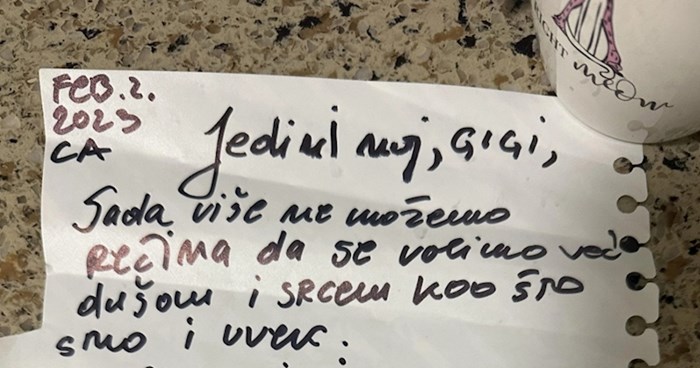 FEB. 2.
2023
CA
Jedini moj, GIGI,
Sada više ne možemo
REČIMA da se volimo već
dušom i SRCEM KOO ŠTO
smo i uvek.
RIGHT meow